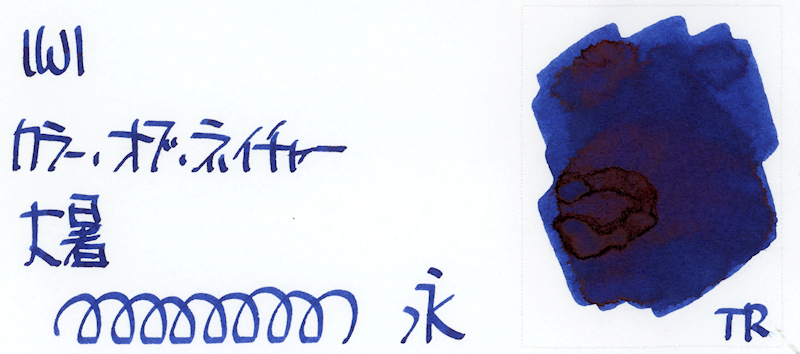 IWI
カラー・オブ・ネイチャー
大暑
永
TR